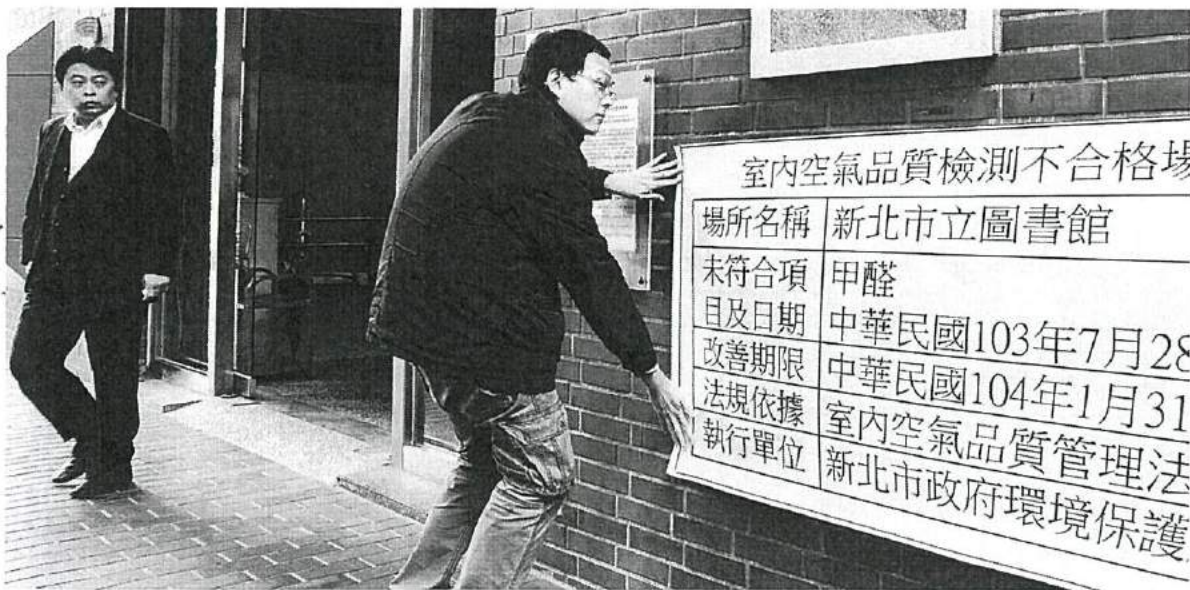 室內空氣品質檢測不合格場
場所名稱 新北市立圖書館
未符合項 甲醛
目及日期 中華民國103年7月28
改善期限 中華民國104年1月31
法規依據 室內空氣品質管理法
執行單位 新北市政府環境保護